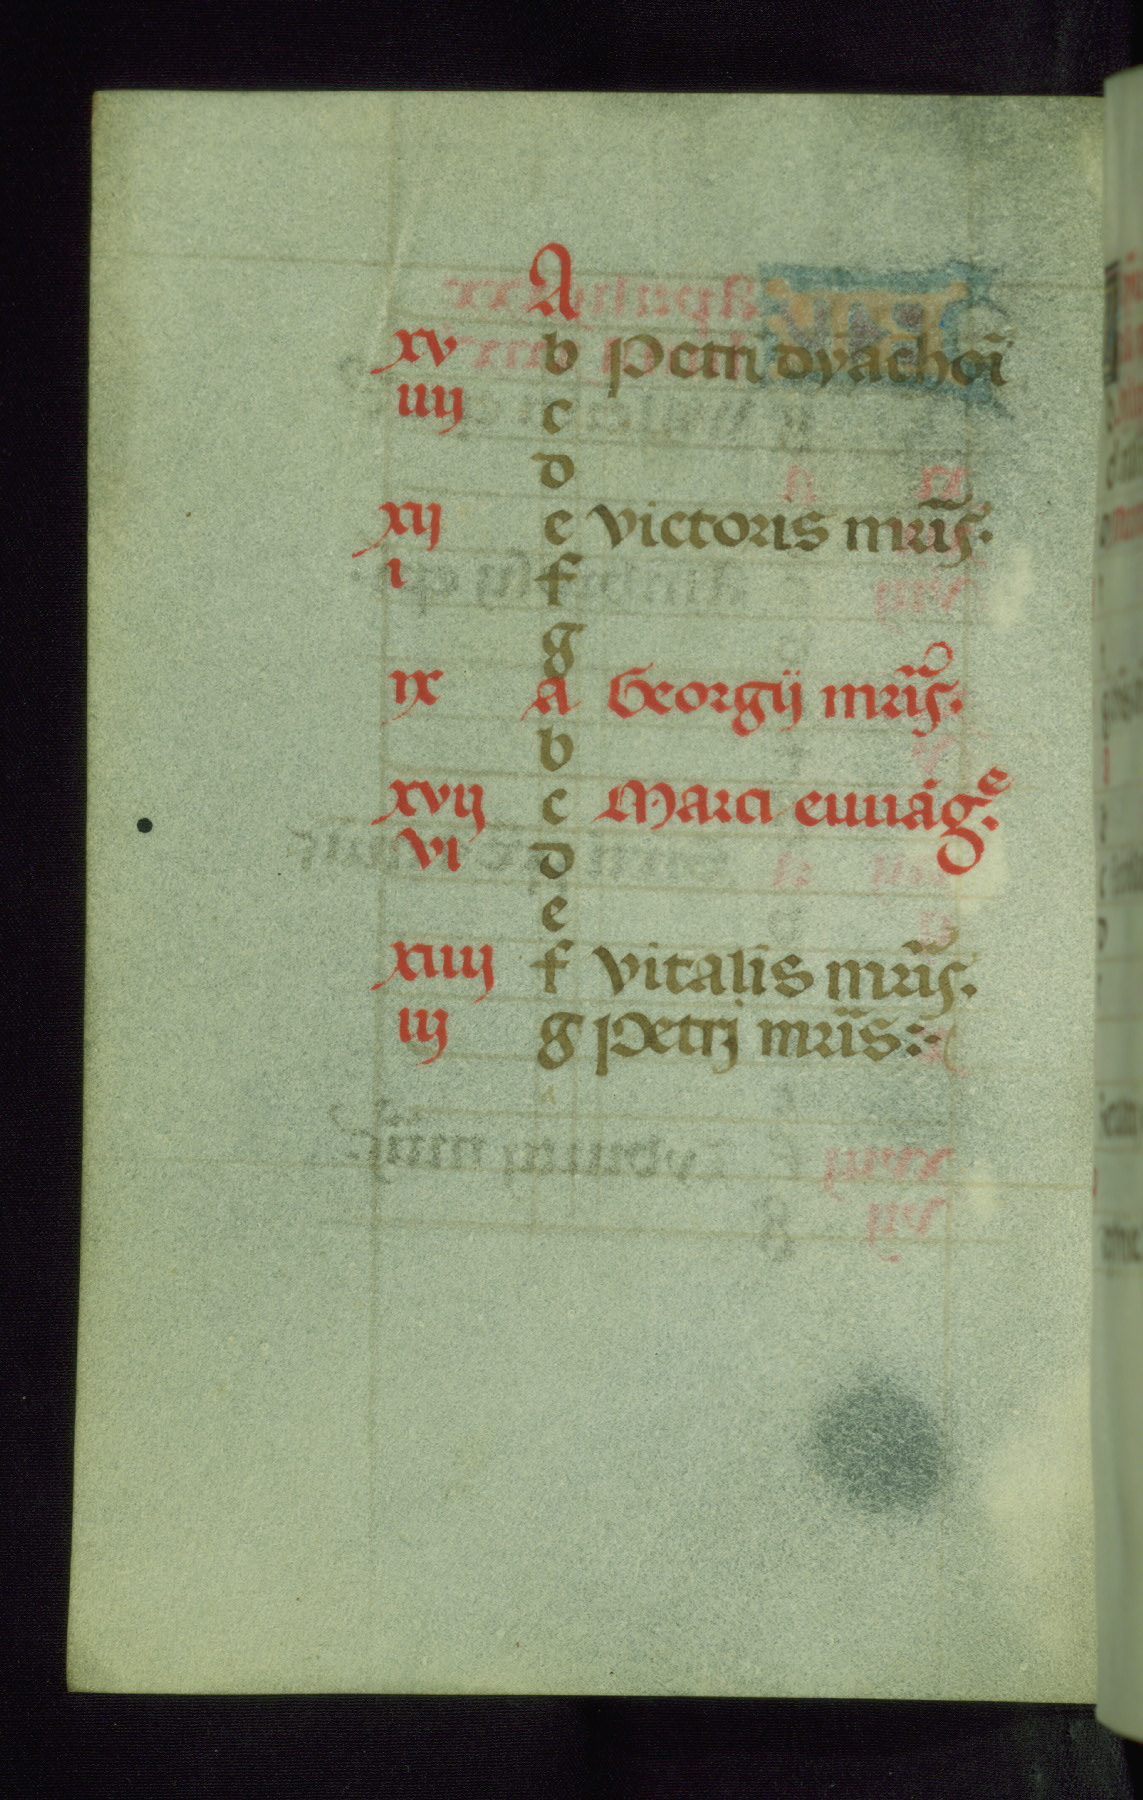 A
xv b Petri dyachoī
iiij c
d
xij e Victoris mrīs.
i f
g
ix A Georgij mrīs.
b
xvij c Marci euuāgᵉ.
vi d
e
xiiij f Vitalis mrīs.
iij g Petrj mrīs